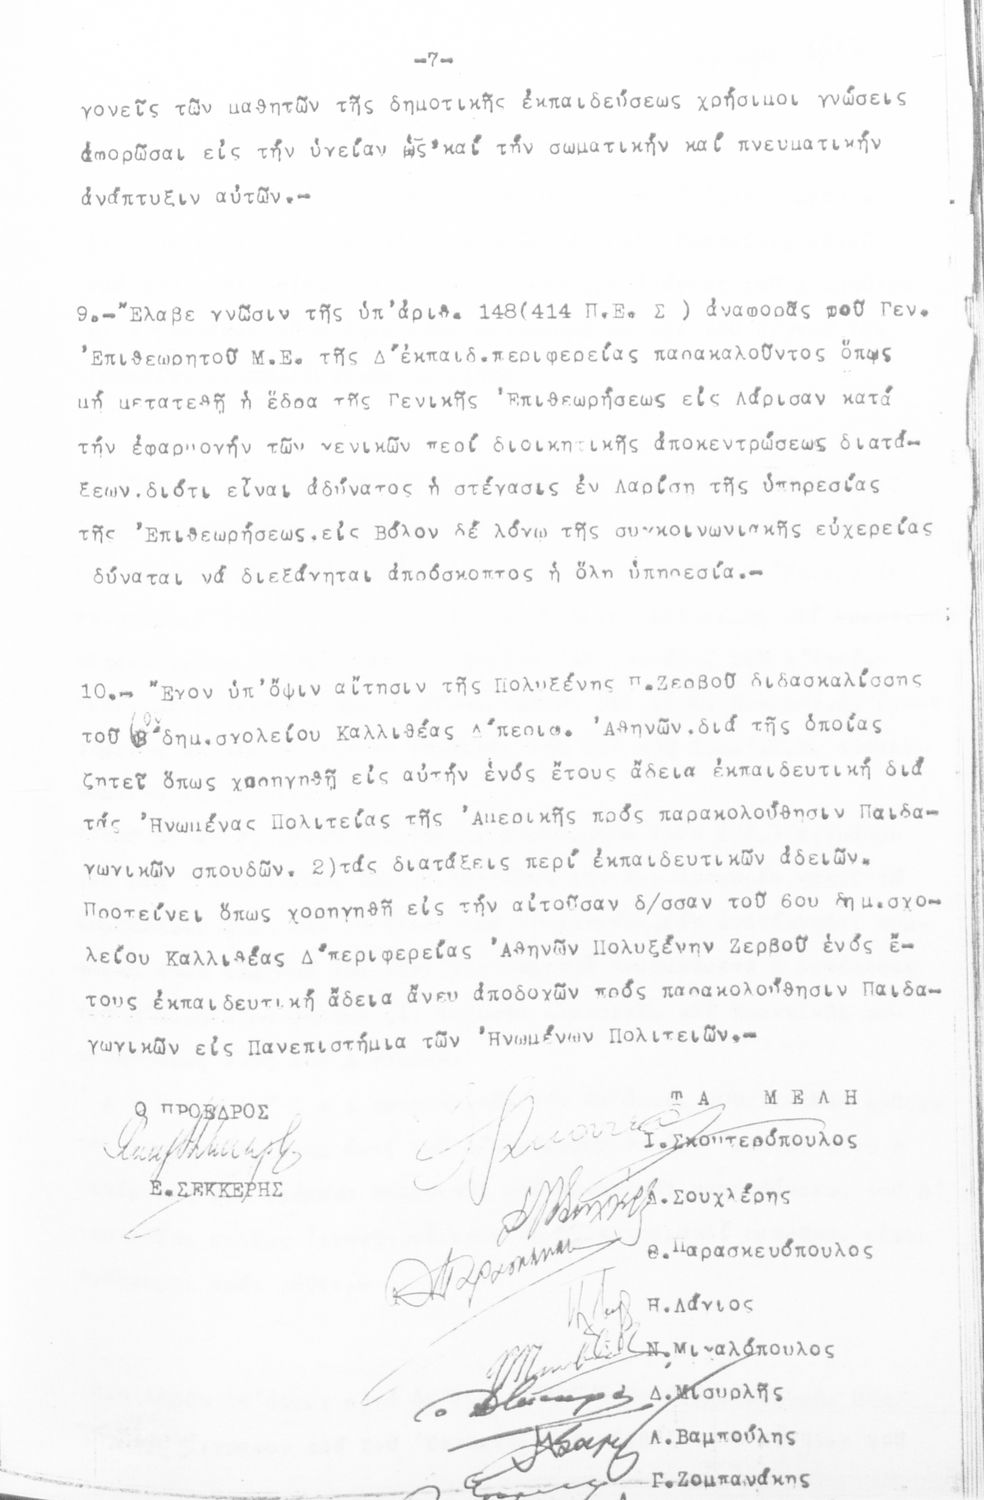 -7-
γονεῖς τῶν μαθητῶν τῆς δημοτικῆς ἐκπαιδεύσεως χρήσιμοι γνώσεις
ἀφορῶσαι εἰς τήν ὑγείαν ὡς καί τήν σωματικήν καί πνευματικήν
ἀνάπτυξιν αὐτῶν.-
9.-Ἔλαβε γνῶσιν τῆς ὑπ'ἀριθ. 148(414 Π.Ε. Σ ) ἀναφορᾶς τοῦ Γεν.
Ἐπιθεωρητοῦ Μ.Ε. τῆς Δ΄ἐκπαιδ.περιφερείας παρακαλοῦντος ὅπως
μή μετατεθῇ ἡ ἕδρα τῆς Γενικῆς Ἐπιθεωρήσεως εἰς Λάρισαν κατά
τήν ἐφαρμογήν τῶν γενικῶν περί διοικητικῆς ἀποκεντρώσεως διατά-
ξεων.διότι εἶναι ἀδύνατος ἡ στέγασις ἐν Λαρίσῃ τῆς ὑπηρεσίας
τῆς Ἐπιθεωρήσεως.εἰς Βόλον δέ λόγω τῆς συγκοινωνιακῆς εὐχερείας
δύναται νά διεξάγηται ἀπρόσκοπτος ἡ ὅλη ὑπηρεσία.-
10.- Ἔχον ὑπ'ὄψιν αἴτησιν τῆς Πολυξένης Π.Ζερβοῦ διδασκαλίσσης
τοῦ 6ου δημ.σχολείου Καλλιθέας Δ΄περιφ. Ἀθηνῶν.διά τῆς ὁποίας
ζητεῖ ὅπως χορηγηθῇ εἰς αὐτήν ἑνός ἔτους ἄδεια ἐκπαιδευτική διά
τάς Ἡνωμένας Πολιτείας τῆς Ἀμερικῆς πρός παρακολούθησιν Παιδα-
γωγικῶν σπουδῶν. 2)τάς διατάξεις περί ἐκπαιδευτικῶν ἀδειῶν.
Προτείνει ὅπως χορηγηθῇ εἰς τήν αἰτοῦσαν δ/σσαν τοῦ 6ου δημ.σχο-
λείου Καλλιθέας Δ΄περιφερείας Ἀθηνῶν Πολυξένην Ζερβοῦ ἑνός ἔ-
τους ἐκπαιδευτική ἄδεια ἄνευ ἀποδοχῶν πρός παρακολούθησιν Παιδα-
γωγικῶν εἰς Πανεπιστήμια τῶν Ἡνωμένων Πολιτειῶν.-
Ο ΠΡΟΕΔΡΟΣ
Ε.ΣΕΚΚΕΡΗΣ
ΤΑ ΜΕΛΗ
Ι.Σκουτερόπουλος
Α.Σουχλέρης
Θ.Παρασκευόπουλος
Η.Λάγιος
Ν.Μιχαλόπουλος
Δ.Μισυρλῆς
Λ.Βαμπούλης
Γ.Ζομπανάκης